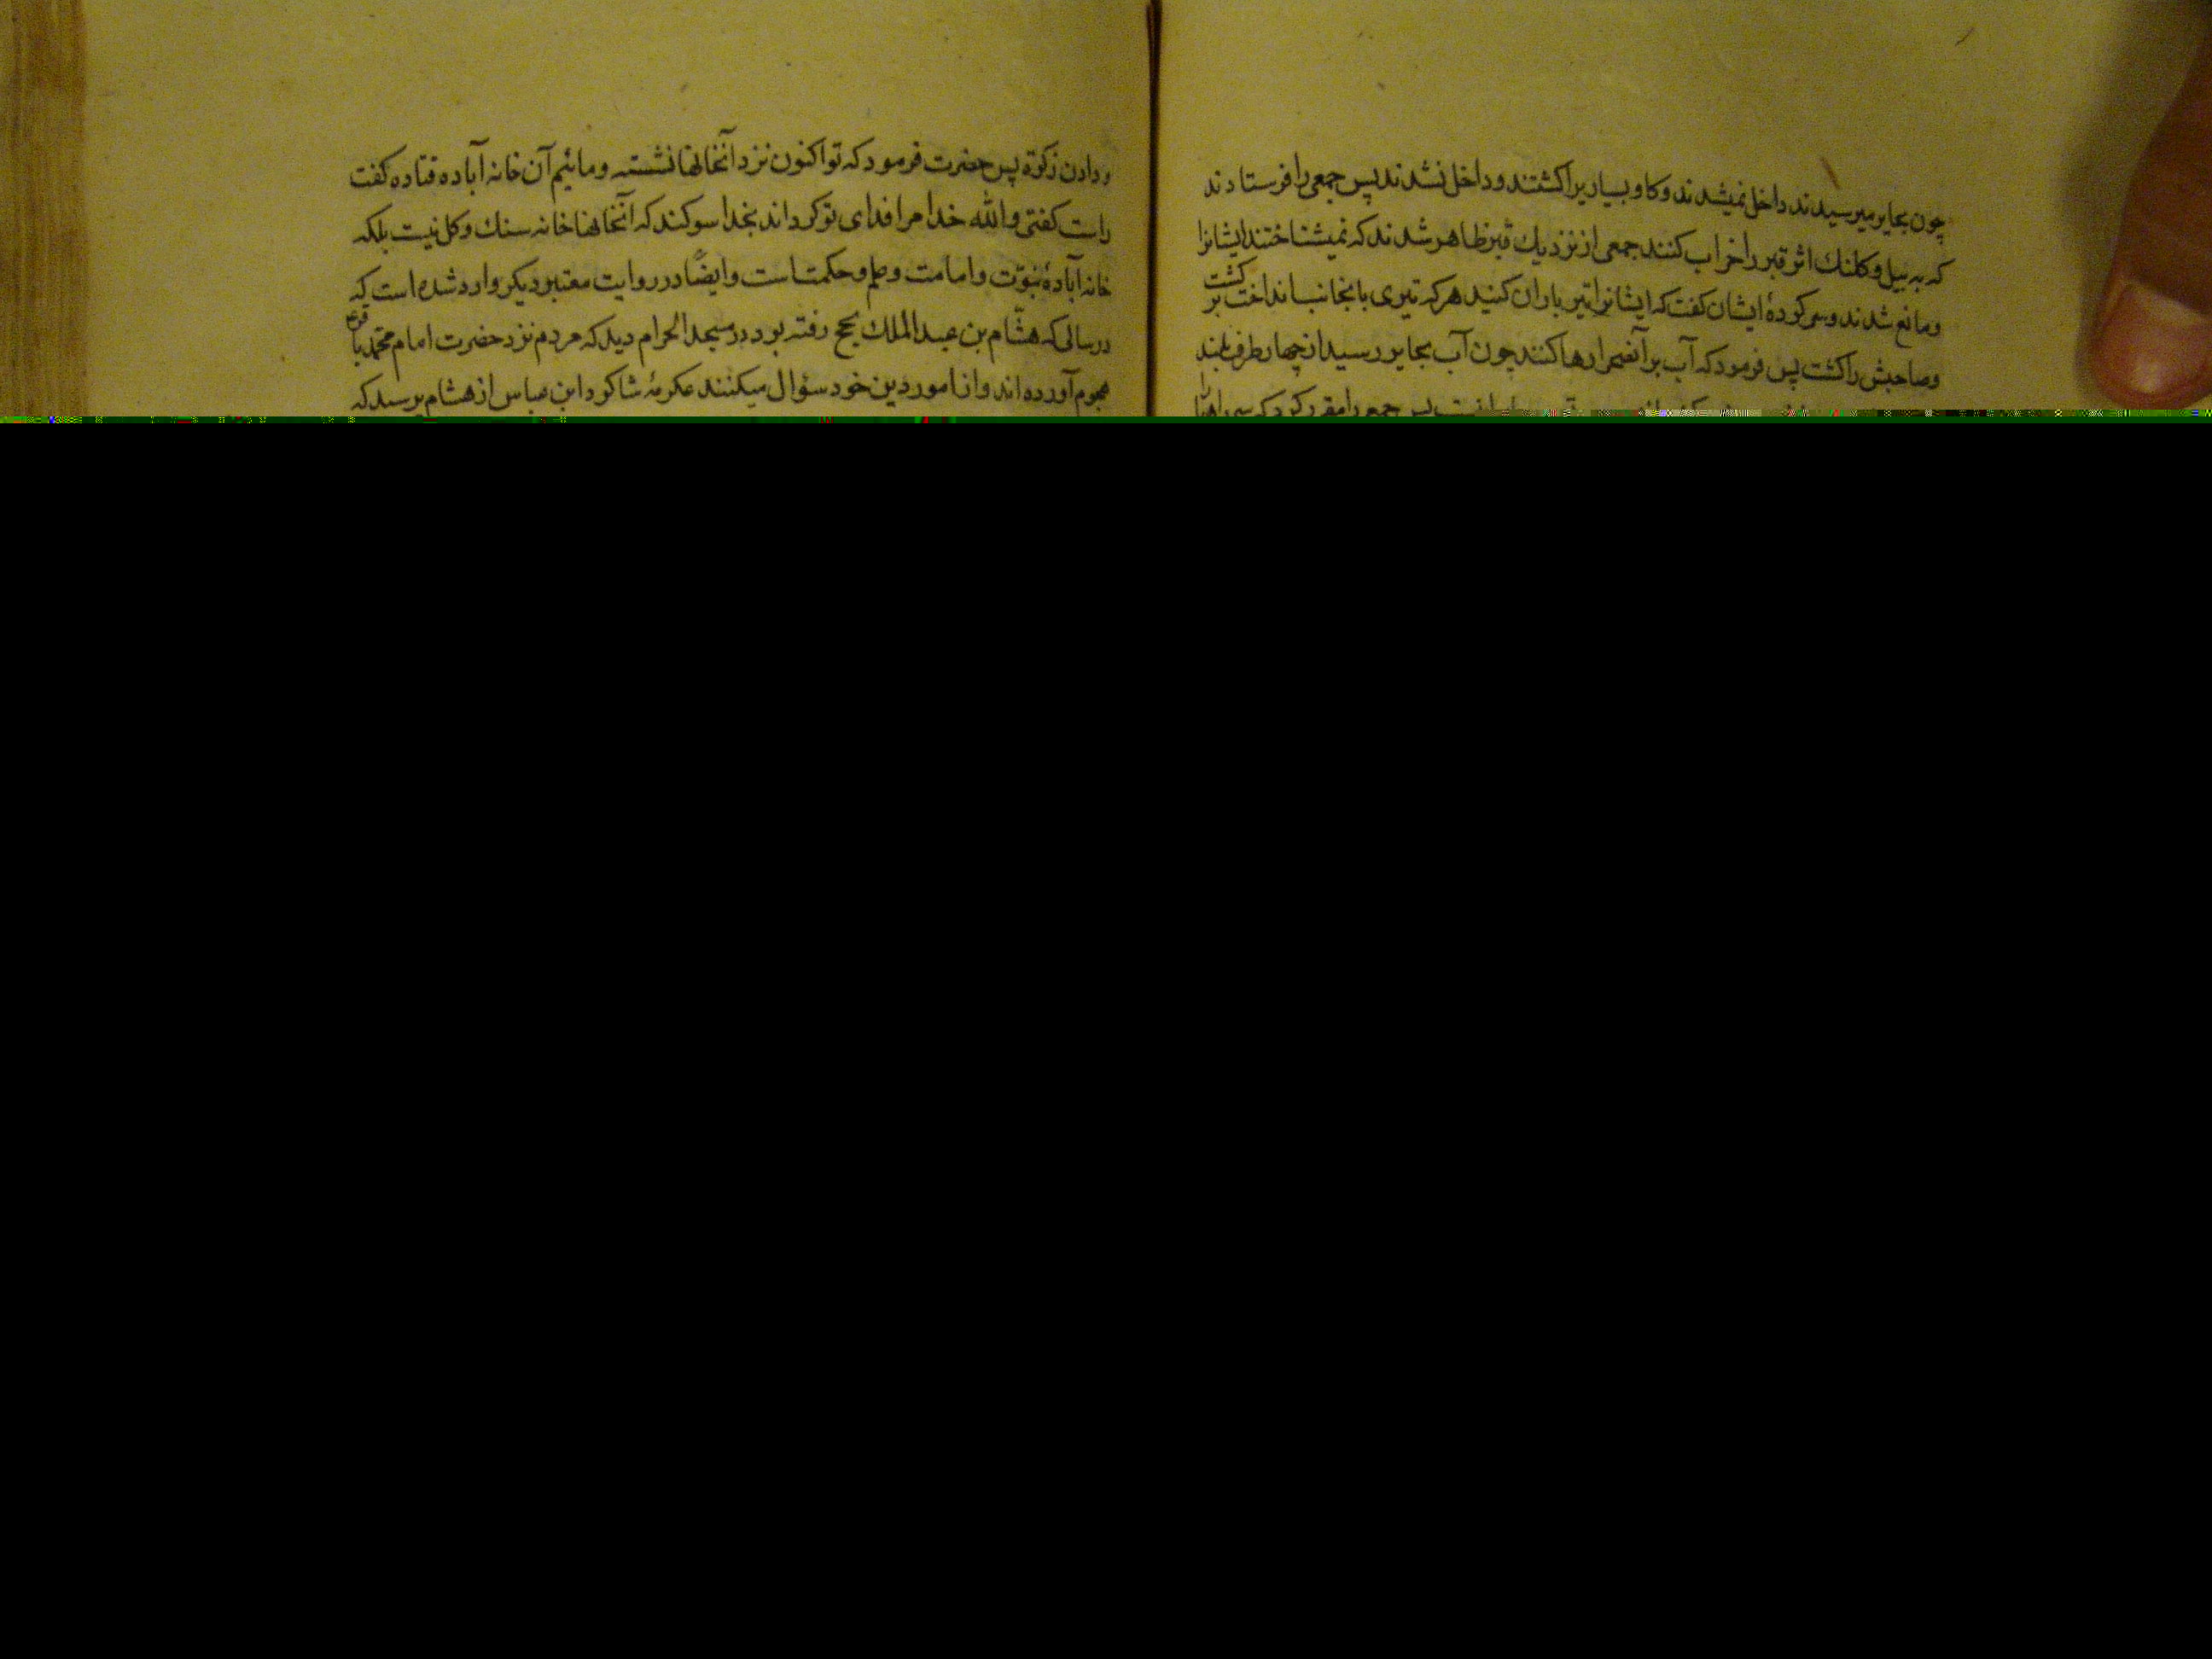 چون بحایر میرسیدند داخل نمیشدند و کاو بسیاریرا کشتند و داخل نشدند پس جمعی را فرستادند
که به بیل و کلنك اثر قبر را خراب کنند جمعی از نزدیك قبر ظاهر شدند که نمیشناختند ایشانرا
و مانع شدند و سر کردهٔ ایشان کفت که ایشانرا تیر باران کنید هر که تیری بانجانب انداخت بر کشت
و صاحبش را کشت پس فرمود که آب بر آنضمرا رها کنند چون آب بحایر رسید از چهار طرف بلند
پس جمعی را مقرر کرد که سر راهها را
و دادن زکوة پس حضرت فرمود که تو اکنون نزد آنخانها نشسته و مائیم آن خانه آباده قتاده کفت
راست کفتی والله خدا مرا فدای تو کرداند بخدا سوکند که آنخانها خانه سنك و کل نیست بلکه
خانه آبادهٔ نبوّت و امامت و علم و حکمتست و ایضًا در روایت معتبر دیکر وارد شده است که
در سالی که هشّام بن عبد الملك بحج رفته بود در مسجد الحرام دید که مردم نزد حضرت امام محمّد باقر ع
هجوم آورده اند و از امور دین خود سؤال میکنند عکرمهٔ شاکرد ابن عباس از هشام پرسید که